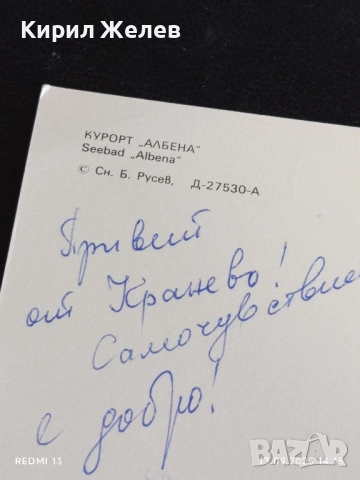 Кирил Желев
КУРОРТ „АЛБЕНА"
Seebad „Albena"
© Сн. Б. Русев, Д-27530-А
Привет
от Кранево!
Самочувствие
е добро!
REDMI 13
bazar